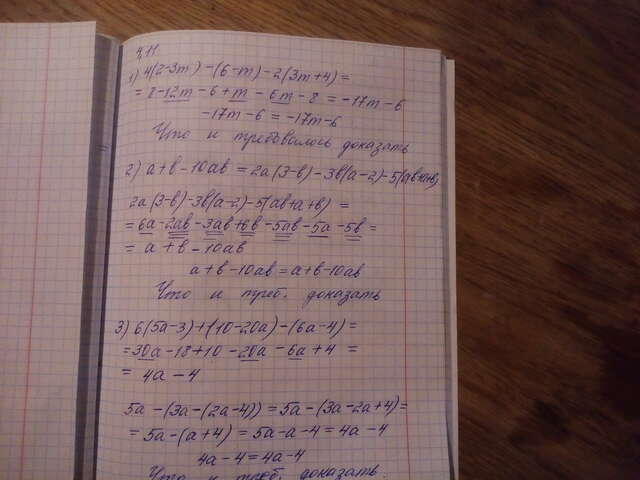 4.11
1) 4(2-3m) -(6-m) -2(3m+4) =
= 8-12m -6+m - 6m - 8 = -17m -6
-17m -6 = -17m-6
Что и требовалось доказать
2) a+b -10ab = 2a(3-b) -3b(a-2) -5(ab+a+b)
2a(3-b) -3b(a-2) -5(ab+a+b) =
= 6a -2ab -3ab +6b -5ab -5a -5b =
= a+b -10ab
a+b -10ab = a+b-10ab
Что и треб. доказать
3) 6(5a-3)+(10-20a) -(6a-4) =
= 30a -18+10 -20a -6a +4 =
= 4a -4
5a -(3a-(2a-4)) = 5a -(3a-2a+4) =
= 5a -(a+4) = 5a-a -4 = 4a -4
4a -4 = 4a-4
Что и треб. доказать.